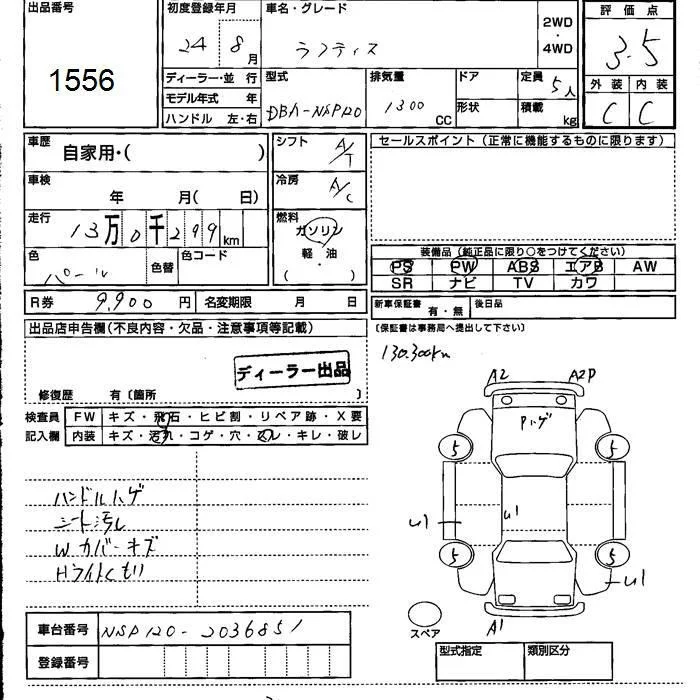 出品番号
1556
初度登録年月
24 8 月
車名・グレード
ラクティス
2WD
・
4WD
評価点
3.5
外装 内装
C C
ディーラー・並 行
モデル年式 年
ハンドル 左・右
型式
DBA-NSP120
排気量
1300 CC
ドア
形状
定員 5人
積載 kg
車歴
自家用・( )
車検
年 月( 日)
走行
13万0千299km
色
パール
色替
色コード
シフト
A/T
冷房
A/C
燃料
ガソリン
軽・油
( )
セールスポイント(正常に機能するものに限ります)
装備品(純正品に限り○をつけてください)
PS PW ABS エアB AW
SR ナビ TV カワ
R券 9,900 円 名変期限 月 日
新車保証書 有・無 後日品
(保証書は事務局へ提出して下さい)
出品店申告欄(不良内容・欠品・注意事項等記載)
ディーラー出品
修復歴 有〔箇所 〕
130,300km
検査員 FW キズ・飛石・ヒビ割・リペア跡・X要
記入欄 内装 キズ・汚れ・コゲ・穴・スレ・キレ・破レ
ハンドルハゲ
シート汚レ
W カバーキズ
Hライトくもり
A2 A2P
Pハゲ
5 5
U1 U1
5 5
U1
A1
スペア
車台番号 NSP120-2036851
登録番号
型式指定 類別区分